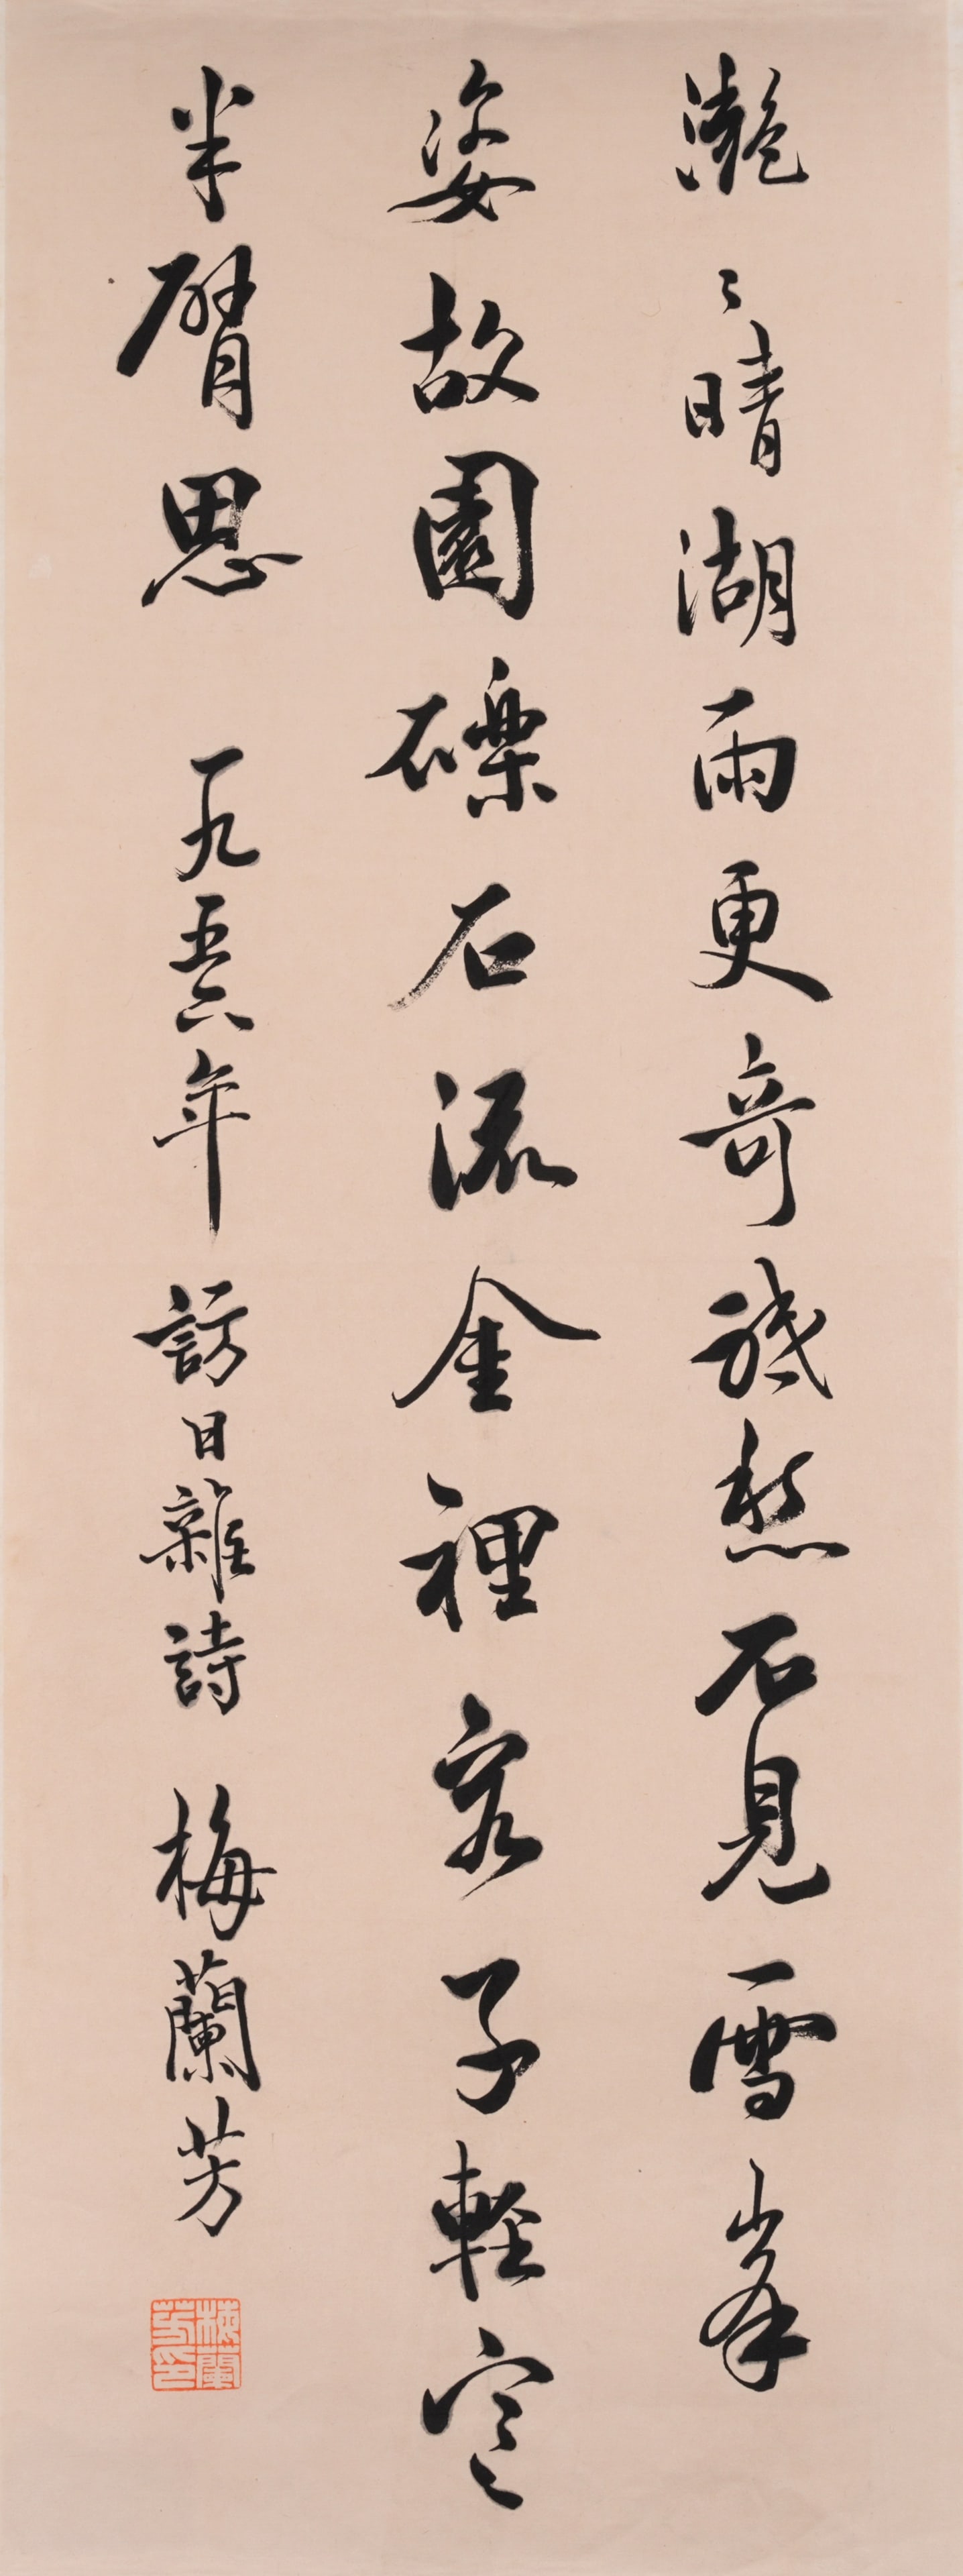 灔〻晴湖雨更奇祗愁不見雪峯
姿故園礫石流金裡客子輕寒
半臂思 一九五六年 訪日雜詩 梅蘭芳
梅蘭芳印